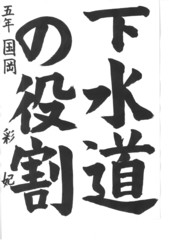 下水道
の役割
五年 国岡 彩妃